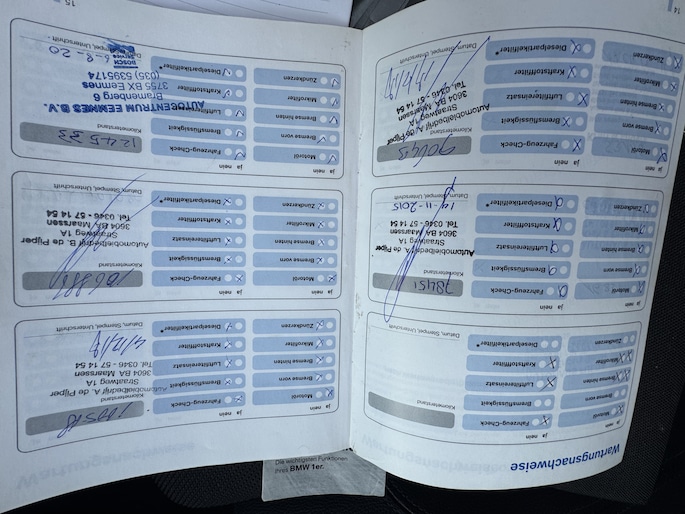 Wartungsnachweise
ja nein ja nein
Motoröl Fahrzeug-Check Kilometerstand
Bremse vorn Bremsflüssigkeit
Bremse hinten Luftfiltereinsatz
Mikrofilter Kraftstofffilter
Zündkerzen Dieselpartikelfilter* Datum, Stempel, Unterschrift
ja nein ja nein
Motoröl Fahrzeug-Check Kilometerstand 78451
Bremse vorn Bremsflüssigkeit Automobielbedrijf A. de Pijper
Bremse hinten Luftfiltereinsatz Straatweg 1A
Mikrofilter Kraftstofffilter 3604 BA Maarssen
Zündkerzen Dieselpartikelfilter* Tel. 0346 - 57 14 54
Datum, Stempel, Unterschrift
ja nein ja nein
Motoröl Fahrzeug-Check Kilometerstand
Bremse vorn Bremsflüssigkeit Automobielbedrijf A. de Pijper
Bremse hinten Luftfiltereinsatz Straatweg 1A
Mikrofilter Kraftstofffilter 3604 BA Maarssen
Zündkerzen Dieselpartikelfilter* Tel. 0346 - 57 14 54
Datum, Stempel, Unterschrift
14
ja nein ja nein
Motoröl Fahrzeug-Check Kilometerstand
Bremse vorn Bremsflüssigkeit Automobielbedrijf A. de Pijper
Bremse hinten Luftfiltereinsatz Straatweg 1A
Mikrofilter Kraftstofffilter 3604 BA Maarssen
Zündkerzen Dieselpartikelfilter* Tel. 0346 - 57 14 54
4/12/18
Datum, Stempel, Unterschrift
ja nein ja nein
Motoröl Fahrzeug-Check Kilometerstand
Bremse vorn Bremsflüssigkeit Automobielbedrijf B. de Pijper
Bremse hinten Luftfiltereinsatz Straatweg 1A
Mikrofilter Kraftstofffilter 3604 BA Maarssen
Zündkerzen Dieselpartikelfilter* Tel. 0346 - 57 14 54
Datum, Stempel, Unterschrift
ja nein ja nein
Motoröl Fahrzeug-Check Kilometerstand 124533
Bremse vorn Bremsflüssigkeit AUTOCENTRUM EEMNES B.V.
Bremse hinten Luftfiltereinsatz Bramenberg 6
Mikrofilter Kraftstofffilter 3755 BX Eemnes
Zündkerzen Dieselpartikelfilter* (035) 5395174
6-8-20 BOSCH
Datum, Stempel, Unterschrift
15
Die wichtigsten Funktionen
Ihres BMW 1er.